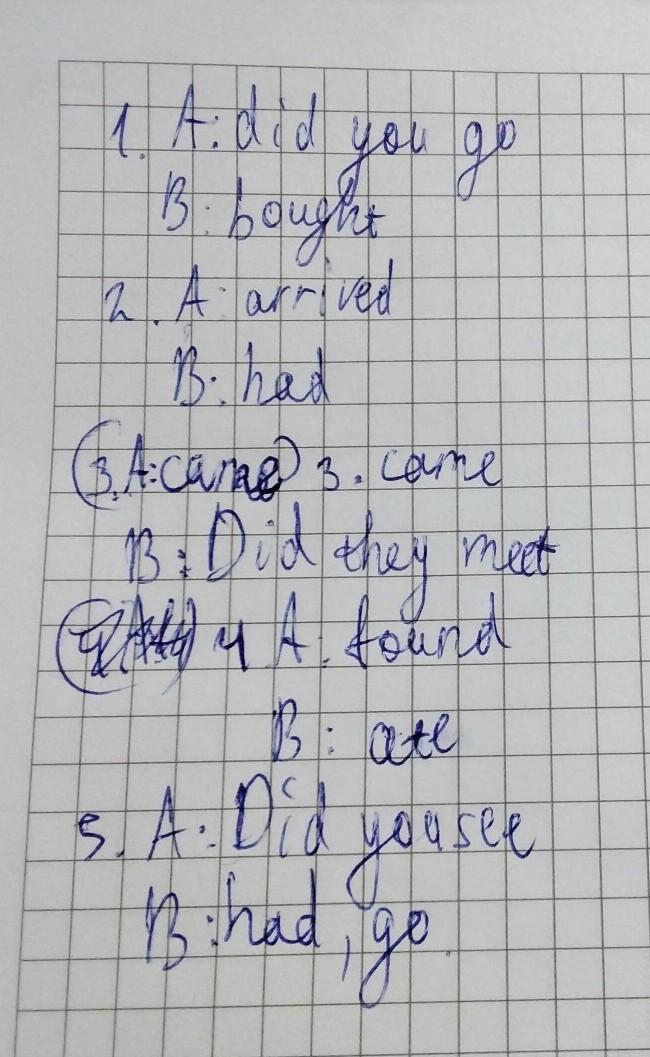 1. A: did you go
B: bought
2. A: arrived
B: had
(3. A: came) 3. came
B: Did they meet
4 A: found
B: ate
5. A: Did you see
B: had, go.